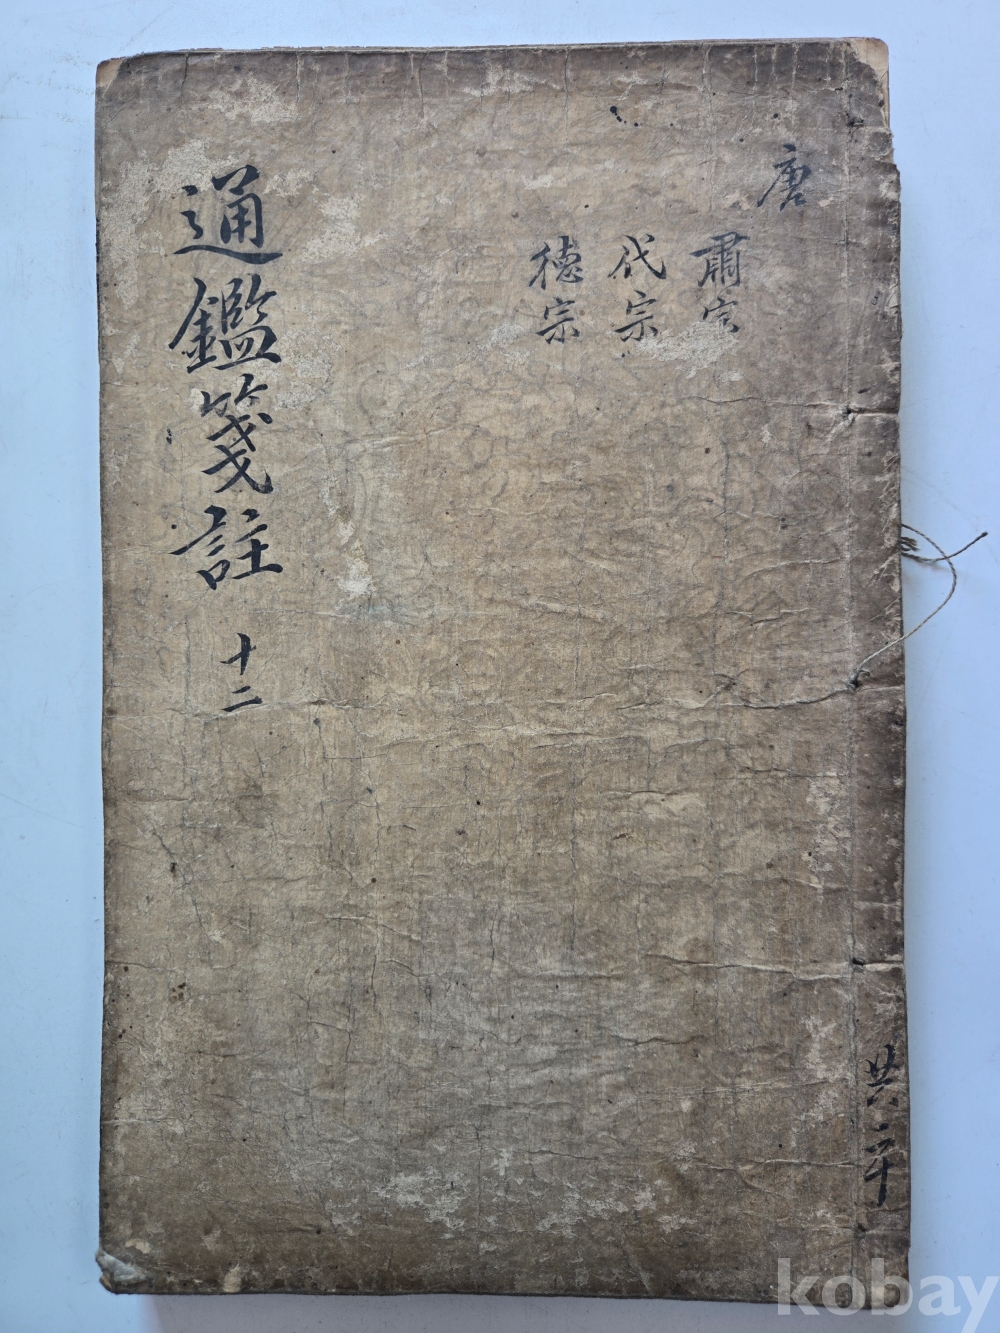 唐
肅宗
代宗
德宗
通鑑箋註 十二
共
kobay